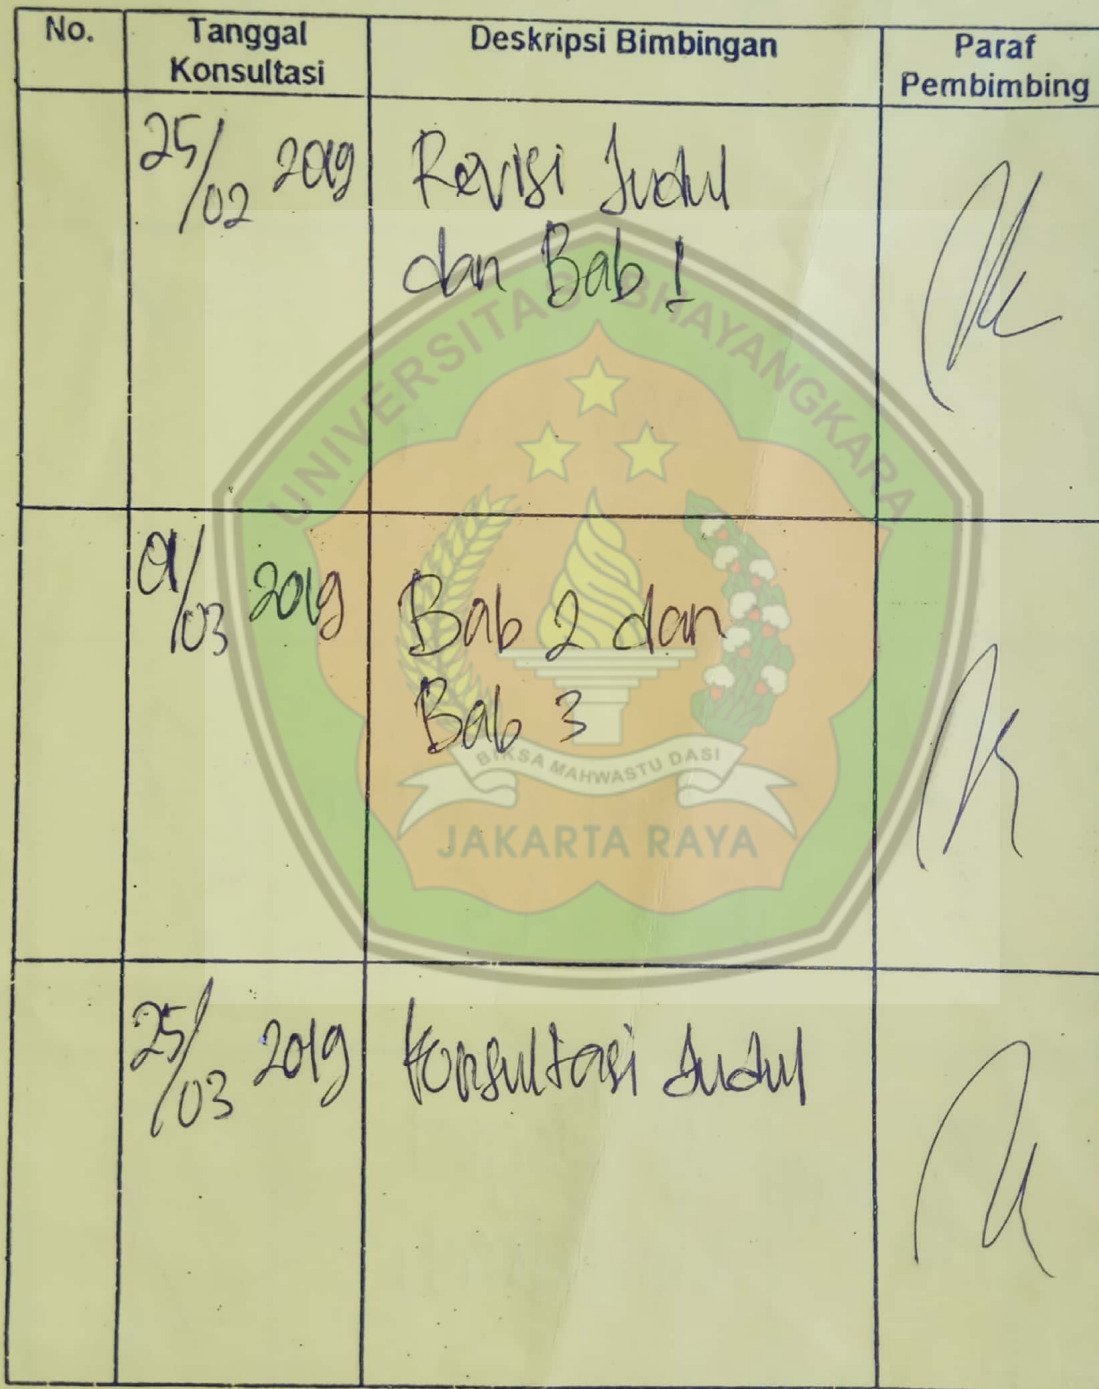 No.
Tanggal
Konsultasi
Deskripsi Bimbingan
Paraf
Pembimbing
25/02 2019
Revisi Judul
dan Bab 1
01/03 2019
Bab 2 dan
Bab 3
25/03 2019
Konsultasi Judul
UNIVERSITAS BHAYANGKARA
BIKSA MAHWASTU DASI
JAKARTA RAYA